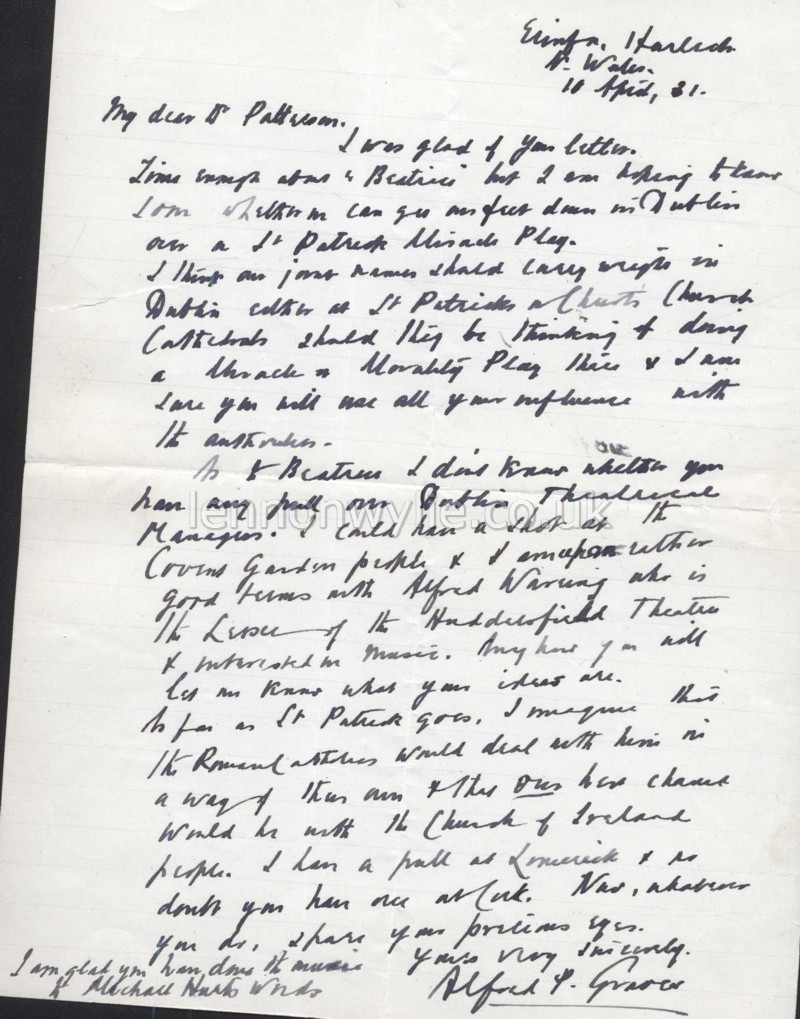 Erinfa, Harlech
N. Wales.
10 April, 31.
My dear Dr Patterson.
I was glad of your letter.
Time enough about "Beatrice" but I am hoping to know
soon whether we can get our feet down in Dublin
over a St Patrick Miracle Play.
I think our joint names should carry weight in
Dublin either at St Patricks or Christ Church
Cathedrals should they be thinking of doing
a Miracle or Morality Play there & I am
sure you will use all your influence with
the authorities.
As to Beatrice I dont know whether you
have any pull over Dublin Theatrical
Managers. I could have a shot at the
Covent Garden people & I am upon rather
good terms with Alfred Wareing who is
the Lessee of the Huddersfield Theatre
& interested in music. Anyhow you will
let me know what your ideas are.
As far as St Patrick goes, I imagine that
the Roman Catholics would deal with him in
a way of their own & that our best chance
would be with the Church of Ireland
people. I have a pull at Limerick & no
doubt you have one at Cork. Now, whatever
you do, spare your precious eyes.
Yours very sincerely.
Alfred P. Graves
I am glad you have done the music
to Michael Hurts Words
lennonwylie.co.uk